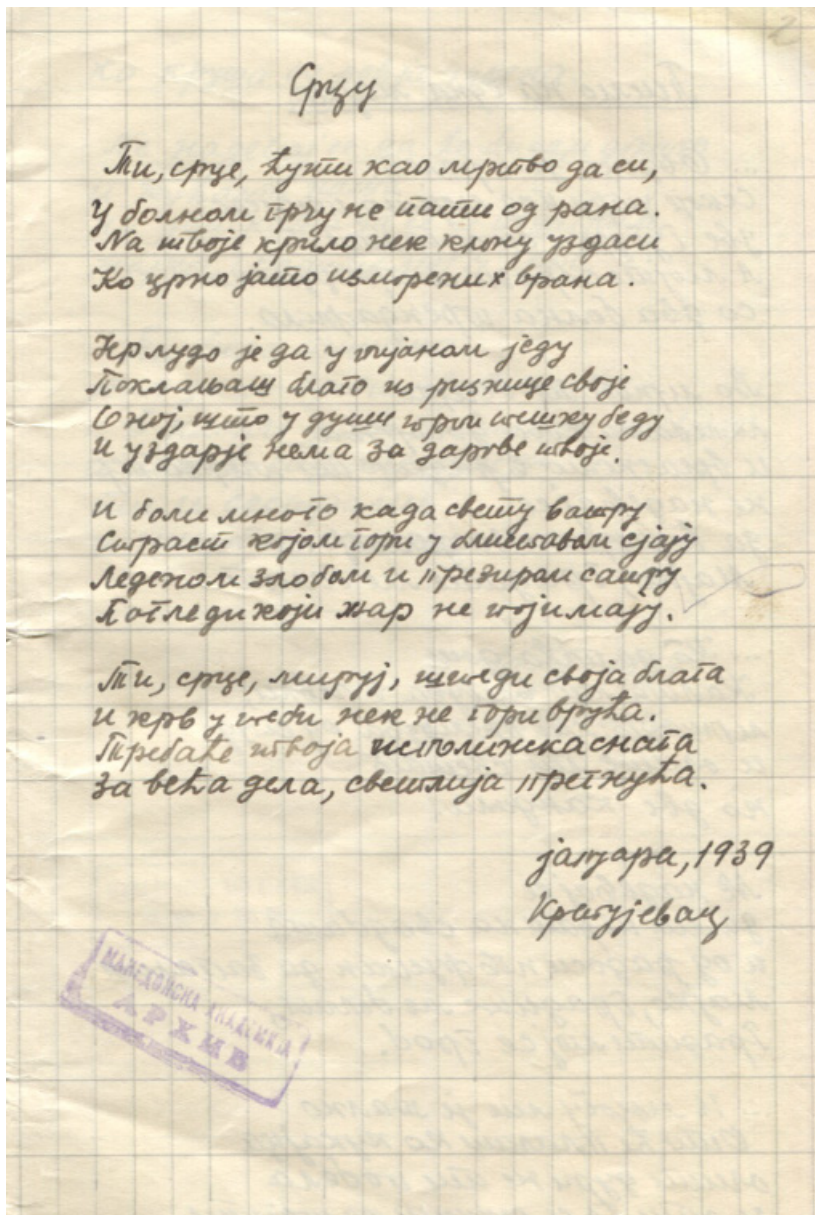 2
Срцу
Ти, срце, ћути као мртво да си,
У болном грчу не пати од рана.
На твоје крило нек клону уздаси
Ко црно јато изморених врана.
Јер лудо је да у пијаном једу
Поклањаш благо из ризнице своје
Оној, што у души трпи тешку беду
И уздарје нема за дарове твоје.
И боли много када свету ватру
Страст којом гори у блиставом сјају
Леденом злобом и презиром сатру
Погледи који жар не појимају.
Ти, срце, мируј, штеди своја блага
И крв у теби нек не гори врућа.
Требаће твоја исполинска снага
За већа дела, светлија прегнућа.
јануара, 1939
Крагујевац
МАКЕДОНСКА АКАДЕМИЈА
АРХИВ